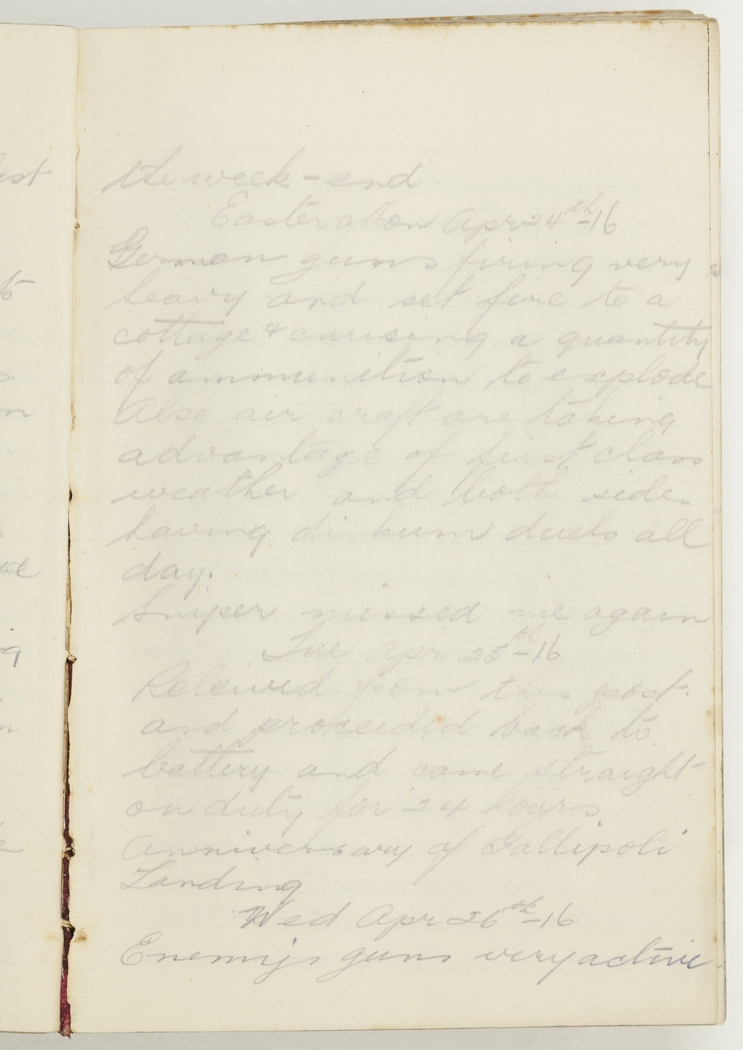 the week-end
Easter Mon Apr 24th-16
German guns firing very
heavy and set fire to a
cottage & causing a quantity
of ammunition to explode
Also air craft are taking
advantage of first class
weather and both sides
having dinkum duels all
day.
Sniper missed me again
Tue Apr 25th-16
Releived from this post.
and proceeded back to
battery and came straight
on duty for 24 hours
Anniversary of Gallipoli
Landing
Wed Apr 26th-16
Enemys guns very active